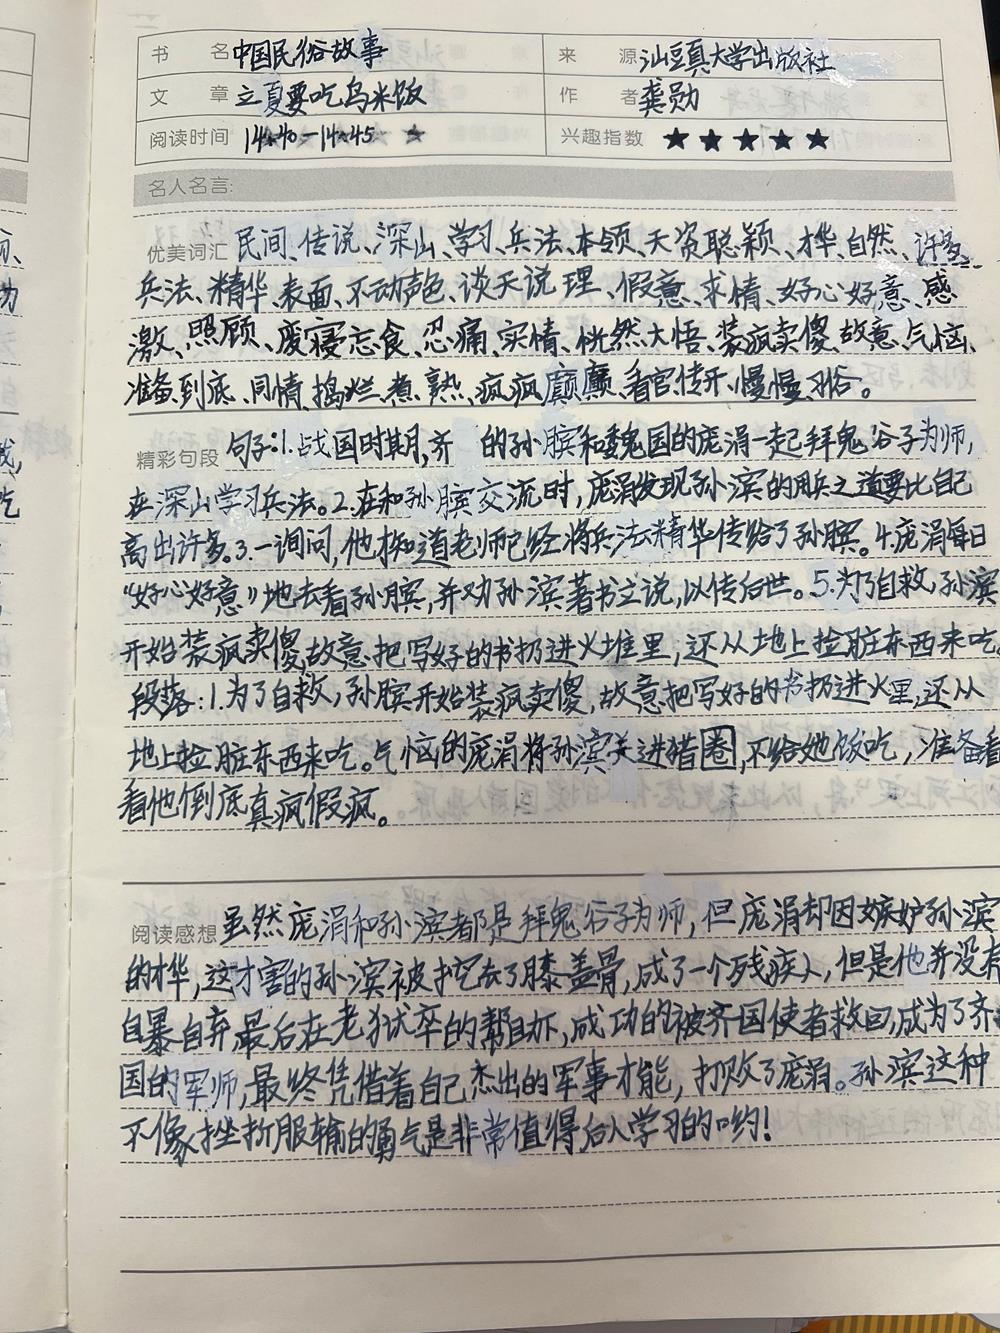 书 名 中国民俗故事 来 源 汕頭真大学出版社
文 章 立夏要吃乌米饭 作 者 龚勋
阅读时间 14:40-14:45 兴趣指数 ★★★★★
名人名言:
优美词汇 民间、传说、深山、学习、兵法、本领、天资聪颖、才华、自然、许多、
兵法、精华、表面、不动声色、谈天说理、假意、求情、好心好意、感
激、照顾、废寝忘食、忍痛、实情、恍然大悟、装疯卖傻、故意、气恼、
准备、到底、同情、捣烂、煮熟、疯疯癫癫、看官传开、慢慢、习俗。
精彩句段 句子:1.战国时期,齐 的孙膑和魏国的庞涓一起拜鬼谷子为师,
在深山学习兵法。2.在和孙膑交流时,庞涓发现孙滨的用兵之道要比自己
高出许多。3.一询问,他才知道老师已经将兵法精华传给了孙膑。4.庞涓每日
“好心好意”地去看孙膑,并劝孙滨著书立说,以传后世。5.为了自救,孙滨
开始装疯卖傻,故意把写好的书扔进火堆里,还从地上捡脏东西来吃。
段落:1.为了自救,孙膑开始装疯卖傻,故意把写好的书扔进火里,还从
地上捡脏东西来吃。气恼的庞涓将孙滨关进猪圈,不给她饭吃,准备看
看他倒底真疯假疯。
阅读感想 虽然庞涓和孙滨都是拜鬼谷子为师,但庞涓却因嫉妒孙滨
的才华,这才害的孙滨被挖去了膝盖骨,成了一个残疾人,但是他并没有
自暴自弃,最后在老狱卒的帮助下,成功的被齐国使者救回,成为了齐
国的军师,最终凭借着自己杰出的军事才能,打败了庞涓。孙滨这种
不像挫折服输的勇气是非常值得后人学习的哟!